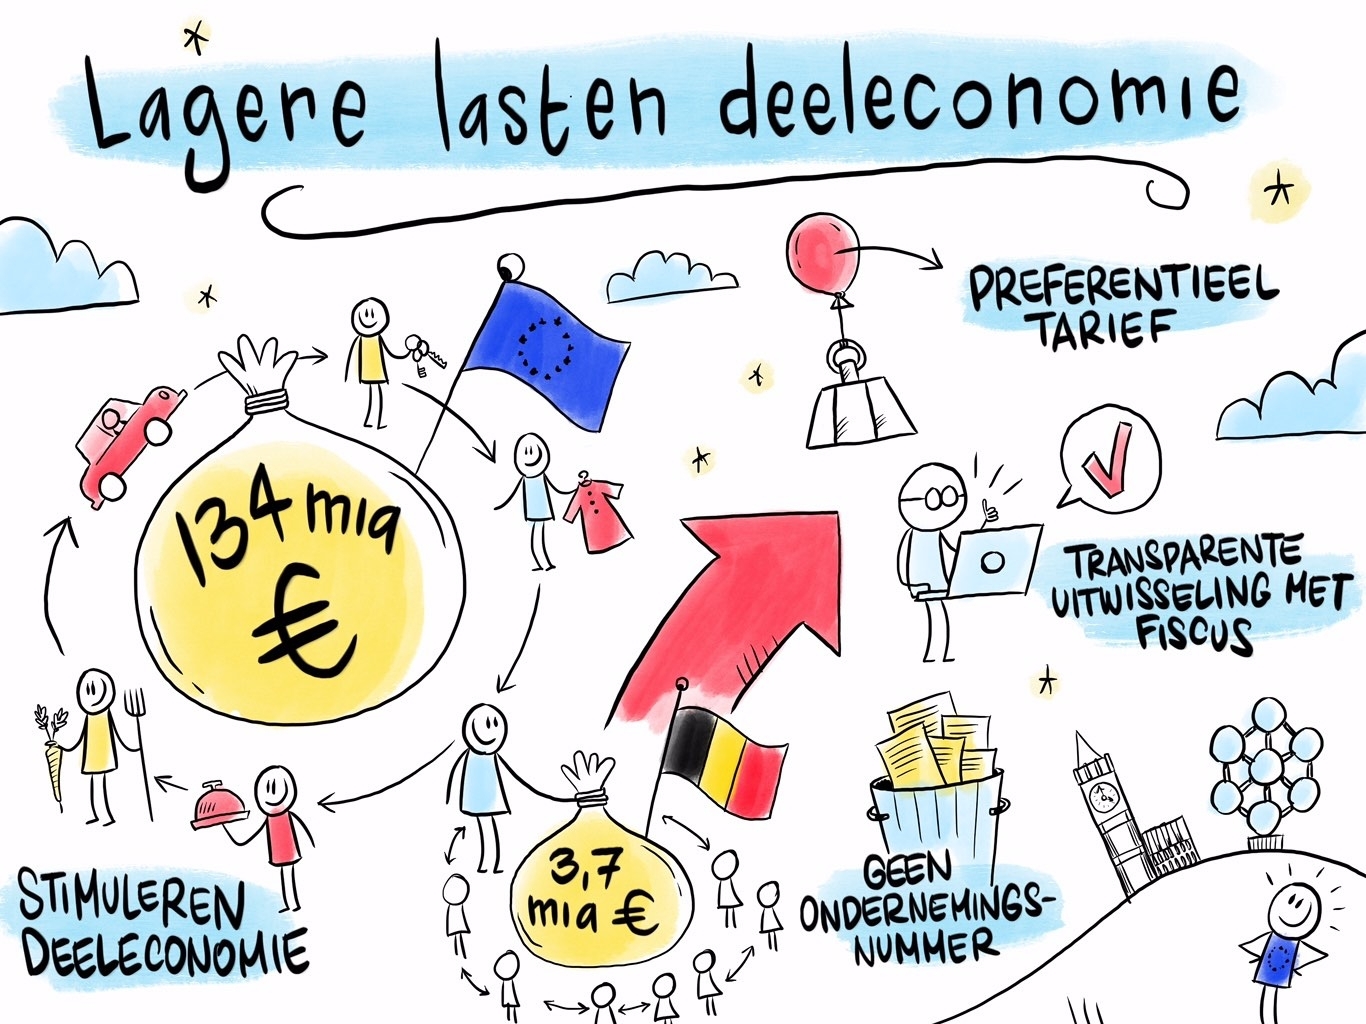 Lagere lasten deeleconomie
PREFERENTIEEL
TARIEF
134 mia
€
TRANSPARENTE
UITWISSELING MET
FISCUS
3,7
mia €
GEEN
ONDERNEMINGS-
NUMMER
STIMULEREN
DEELECONOMIE